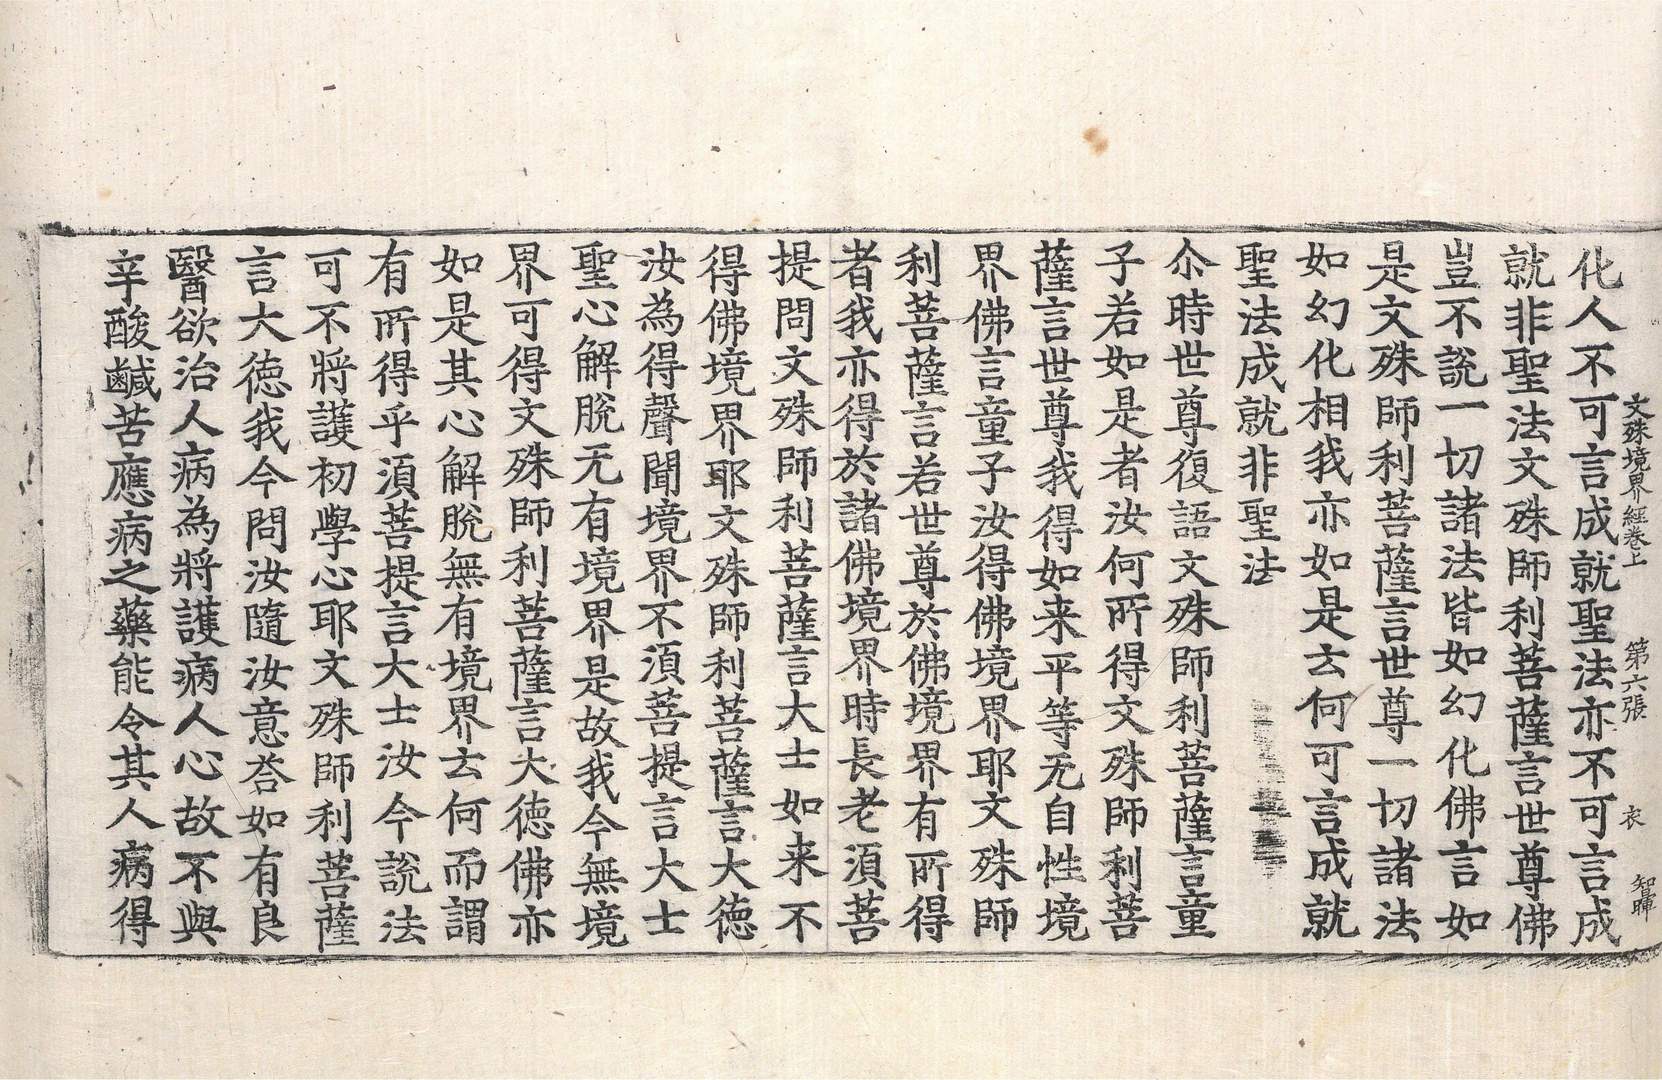 文殊境界經卷上　第六張　衣　智暉
化人不可言成就聖法亦不可言成
就非聖法文殊師利菩薩言世尊佛
豈不說一切諸法皆如幻化佛言如
是文殊師利菩薩言世尊一切諸法
如幻化相我亦如是云何可言成就
聖法成就非聖法
尒時世尊復語文殊師利菩薩言童
子若如是者汝何所得文殊師利菩
薩言世尊我得如来平等无自性境
界佛言童子汝得佛境界耶文殊師
利菩薩言若世尊於佛境界有所得
者我亦得於諸佛境界時長老湏菩
提問文殊師利菩薩言大士如来不
得佛境界耶文殊師利菩薩言大徳
汝為得聲聞境界不湏菩提言大士
聖心解脫无有境界是故我今無境
界可得文殊師利菩薩言大徳佛亦
如是其心解脫無有境界云何而謂
有所得乎湏菩提言大士汝今說法
可不將護初學心耶文殊師利菩薩
言大徳我今問汝隨汝意荅如有良
醫欲治人病為將護病人心故不與
辛酸鹹苦應病之藥能令其人病得